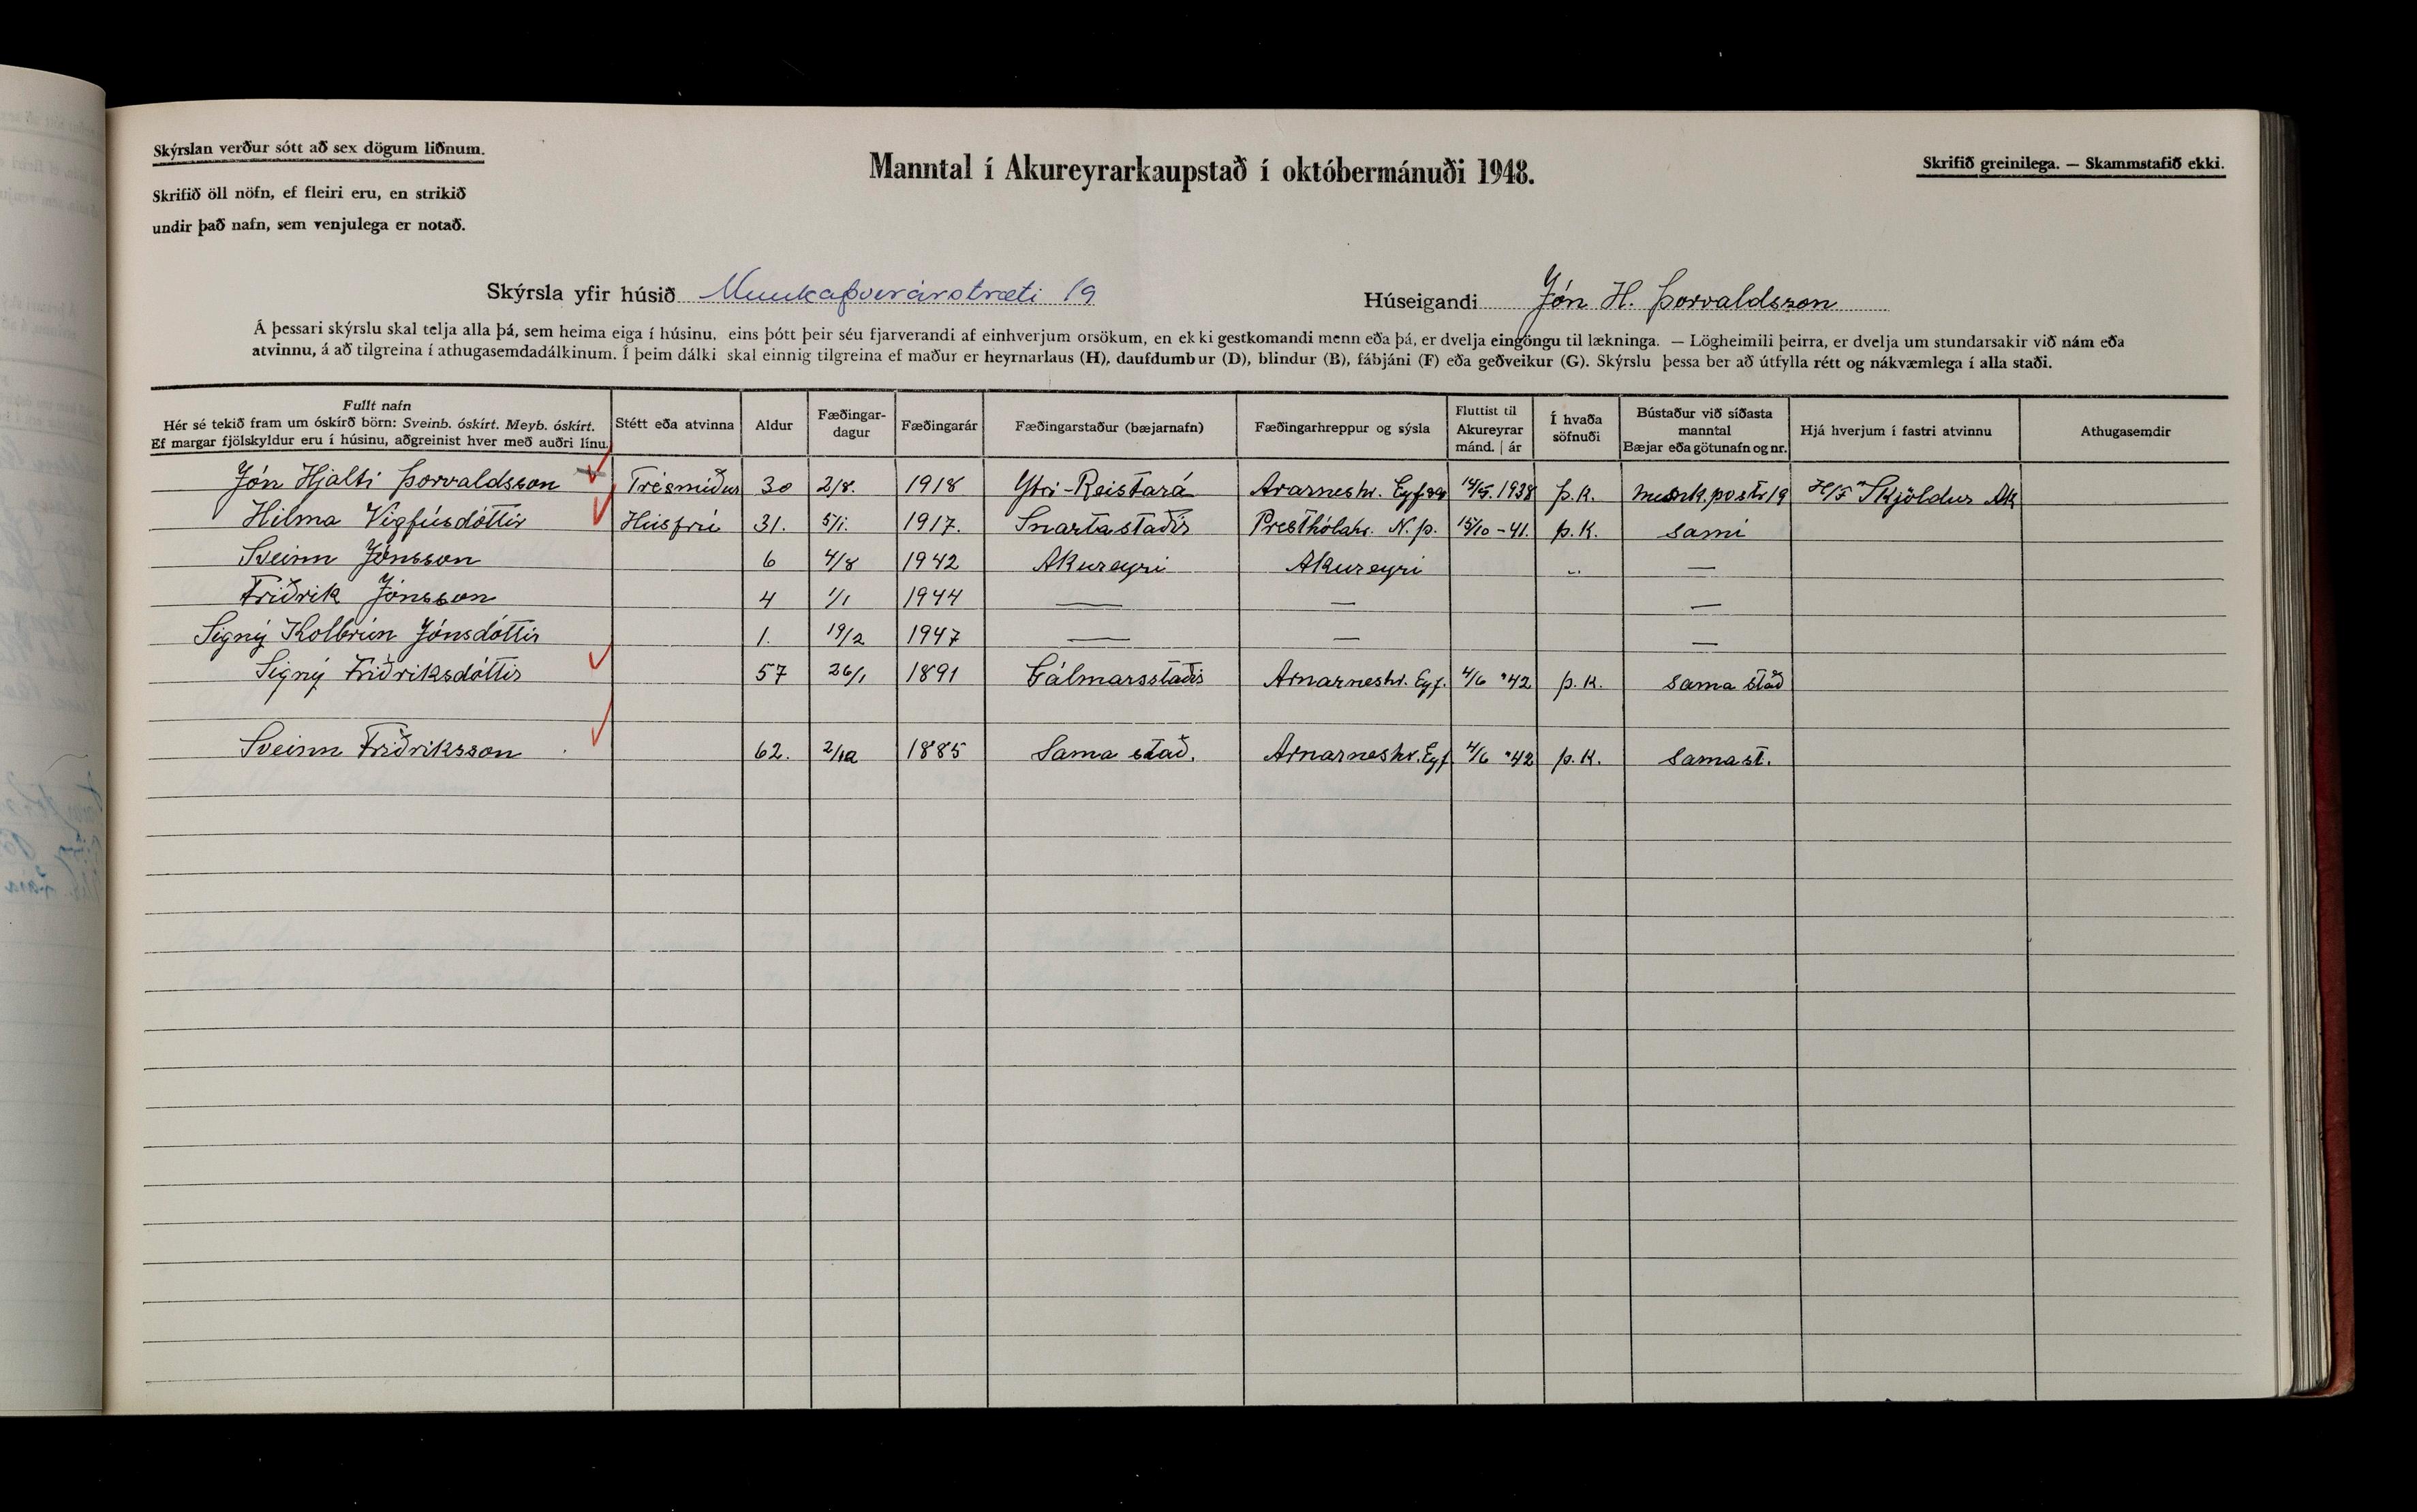 Skýrslan verður sótt að sex dögum liðnum.
Skrifið öll nöfn, ef fleiri eru, en strikið
undir það nafn, sem venjulega er notað.
Manntal í Akureyrarkaupstað í októbermánuði 1948.
Skrifið greinilega. — Skammstafið ekki.
Skýrsla yfir húsið Munkaþverárstræti 19
Húseigandi Jón H. Þorvaldsson
Á þessari skýrslu skal telja alla þá, sem heima eiga í húsinu, eins þótt þeir séu fjarverandi af einhverjum orsökum, en ekki gestkomandi menn eða þá, er dvelja eingöngu til lækninga. — Lögheimili þeirra, er dvelja um stundarsakir við nám eða
atvinnu, á að tilgreina í athugasemdadálkinum. Í þeim dálki skal einnig tilgreina ef maður er heyrnarlaus (H), daufdumbur (D), blindur (B), fábjáni (F) eða geðveikur (G). Skýrslu þessa ber að útfylla rétt og nákvæmlega í alla staði.
Fullt nafn
Hér sé tekið fram um óskírð börn: Sveinb. óskírt. Meyb. óskírt.
Ef margar fjölskyldur eru í húsinu, aðgreinist hver með auðri línu.
Stétt eða atvinna
Aldur
Fæðingar-
dagur
Fæðingarár
Fæðingarstaður (bæjarnafn)
Fæðingarhreppur og sýsla
Fluttist til
Akureyrar
mánd. | ár
Í hvaða
söfnuði
Bústaður við síðasta
manntal
Bæjar eða götunafn og nr.
Hjá hverjum í fastri atvinnu
Athugasemdir
Jón Hjalti Þorvaldsson Trésmiður 30 2/8. 1918 Ytri-Reistará Ararneshr. 1938 þ.k. H/F "Skjöldur Ak
Hilma Vigfúsdóttir Húsfrú 31. 5/1. 1917. Snartastaðir Presthólahr. N. þ. 15/10 - 41. þ.k. sami
Sveinn Jónsson 6 4/8 1942 Akureyri Akureyri „ —
Friðrik Jónsson 4 1/1 1944 — — —
Signý Kolbrún Jónsdóttir 1. 19/2 1947 — — —
Signý Friðriksdóttir 57 26/1 1891 Gálmarsstaðir Arnarneshr. Eyf. 4/6 "42 þ.k. sama stað
Sveinn Friðriksson 62. 2/12 1885 Sama stað. Arnarneshr. Eyf 4/6 "42 þ.k. sama st.